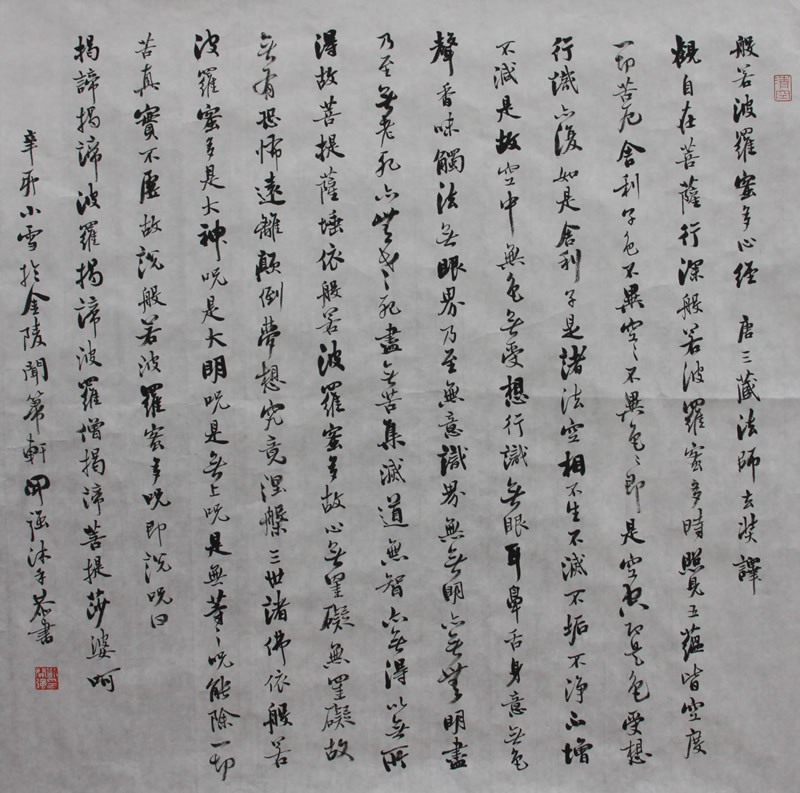 般若波羅蜜多心經 唐三藏法師玄奘譯
觀自在菩薩行深般若波羅蜜多時照見五蘊皆空度
一切苦厄舍利子色不異空〻不異色〻即是空空即是色受想
行識亦復如是舍利子是諸法空相不生不滅不垢不淨不增
不減是故空中無色無受想行識無眼耳鼻舌身意無色
聲香味觸法無眼界乃至無意識界無無明亦無無明盡
乃至無老死亦無老〻死盡無苦集滅道無智亦無得以無所
得故菩提薩埵依般若波羅蜜多故心無罣礙無罣礙故
無有恐怖遠離顛倒夢想究竟涅槃三世諸佛依般若
波羅蜜多是大神咒是大明咒是無上咒是無等〻咒能除一切
苦真實不虛故說般若波羅蜜多咒即說咒曰
揭諦揭諦波羅揭諦波羅僧揭諦菩提莎婆呵
辛卯小雪於金陵聞軒田強沐手恭書